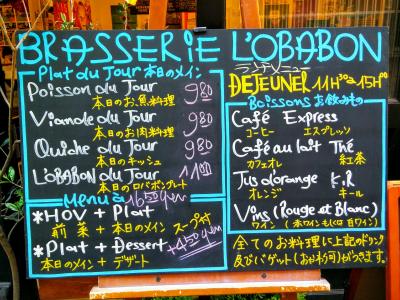 BRASSERIE L'OBABON
Plat du Jour 本日のメイン
Poisson du Jour 980
本日のお魚料理
Viande du Jour 980
本日のお肉料理
Quiche du Jour 980
本日のキッシュ
L'OBABON du Jour 1100
本日のロバボンプレート
Menu à 1650yen
*HOV + Plat
前菜 + 本日のメイン
*Plat + Dessert
本日のメイン + デザート
スープ付
+450yen
ランチメニュー
DEJEUNER 11H30 à 15H00
Boissons お飲みもの
Café Express
コーヒー エスプレッソ
Café au lait Thé
カフェオレ 紅茶
Jus d'orange K.R
オレンジ キール
Vins (Rouge et Blanc)
ワイン (赤ワインもしくは白ワイン)
全てのお料理に上記のドリンク
及びバゲット(おかわり可)がつきます。